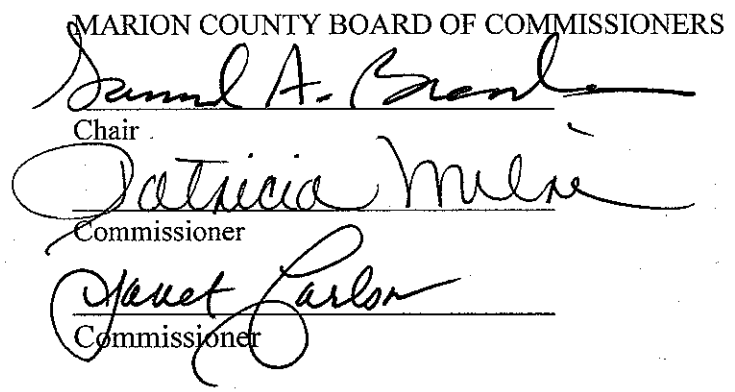 MARION COUNTY BOARD OF COMMISSIONERS
Samuel A. Brentano
Chair
Patricia Milne
Commissioner
Janet Carlson
Commissioner